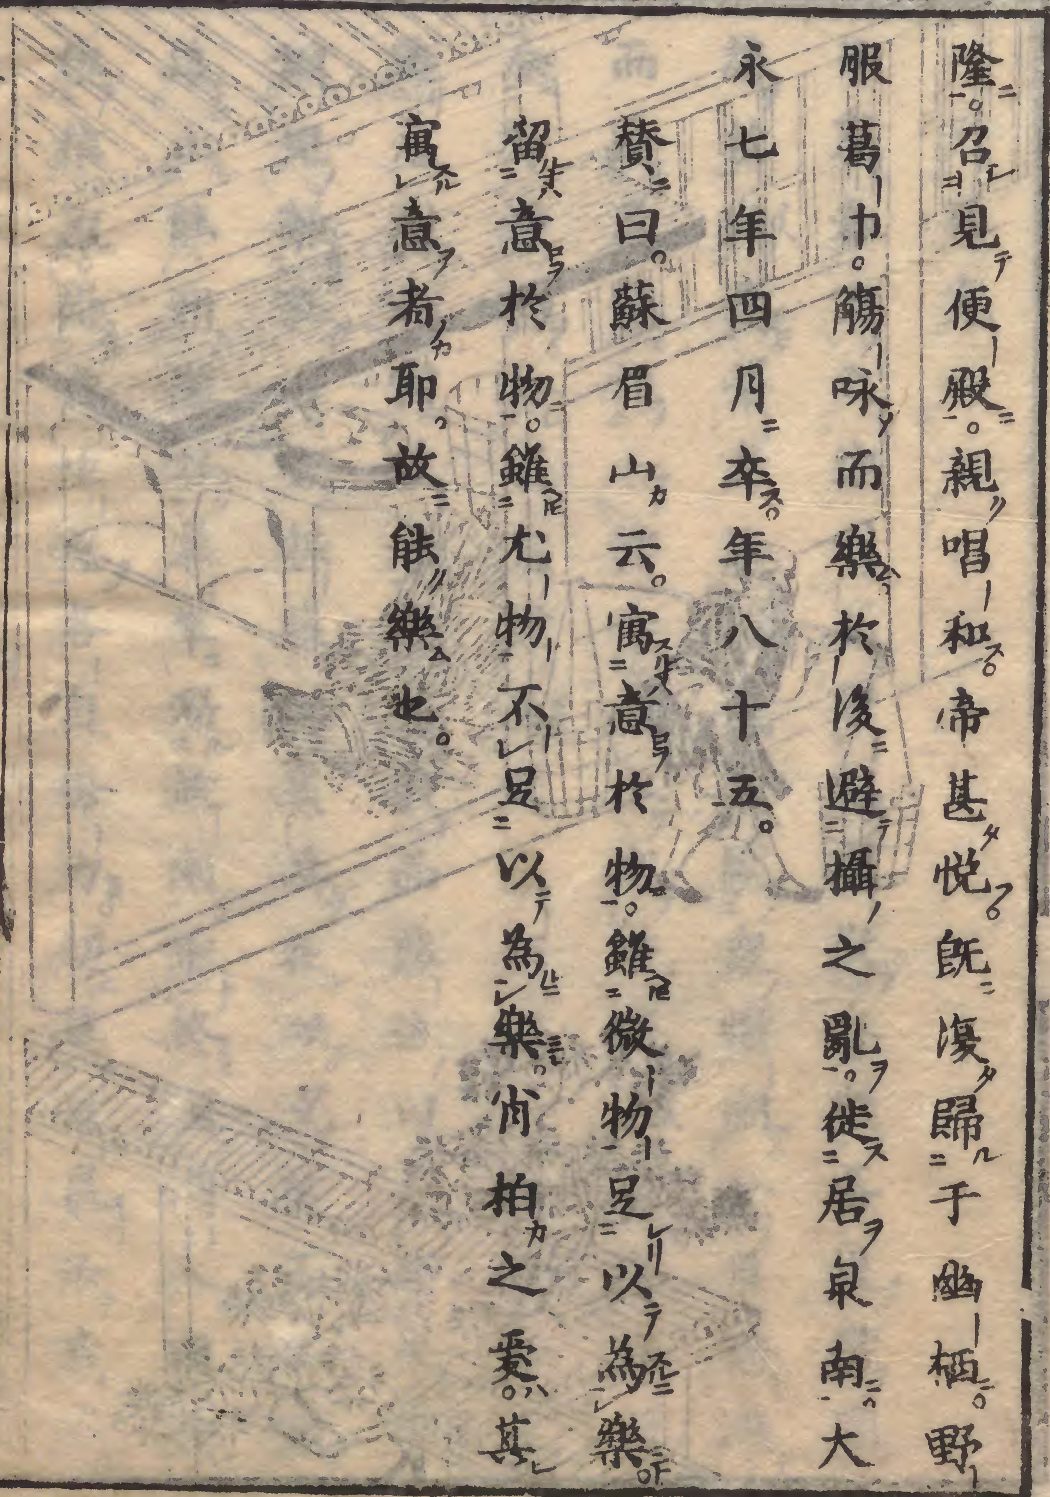 隆。召見便殿。親唱和。帝甚悅。既復歸于幽栖。野
服葛巾。觴咏而樂。於後避攝之亂。徙居泉南。大
永七年四月卒。年八十五。
賛曰。蘇眉山云。寓意於物。雖微物足以為樂。
留意於物。雖尤物不足以為樂。肖柏之愛。其
寓意者耶。故能樂也。